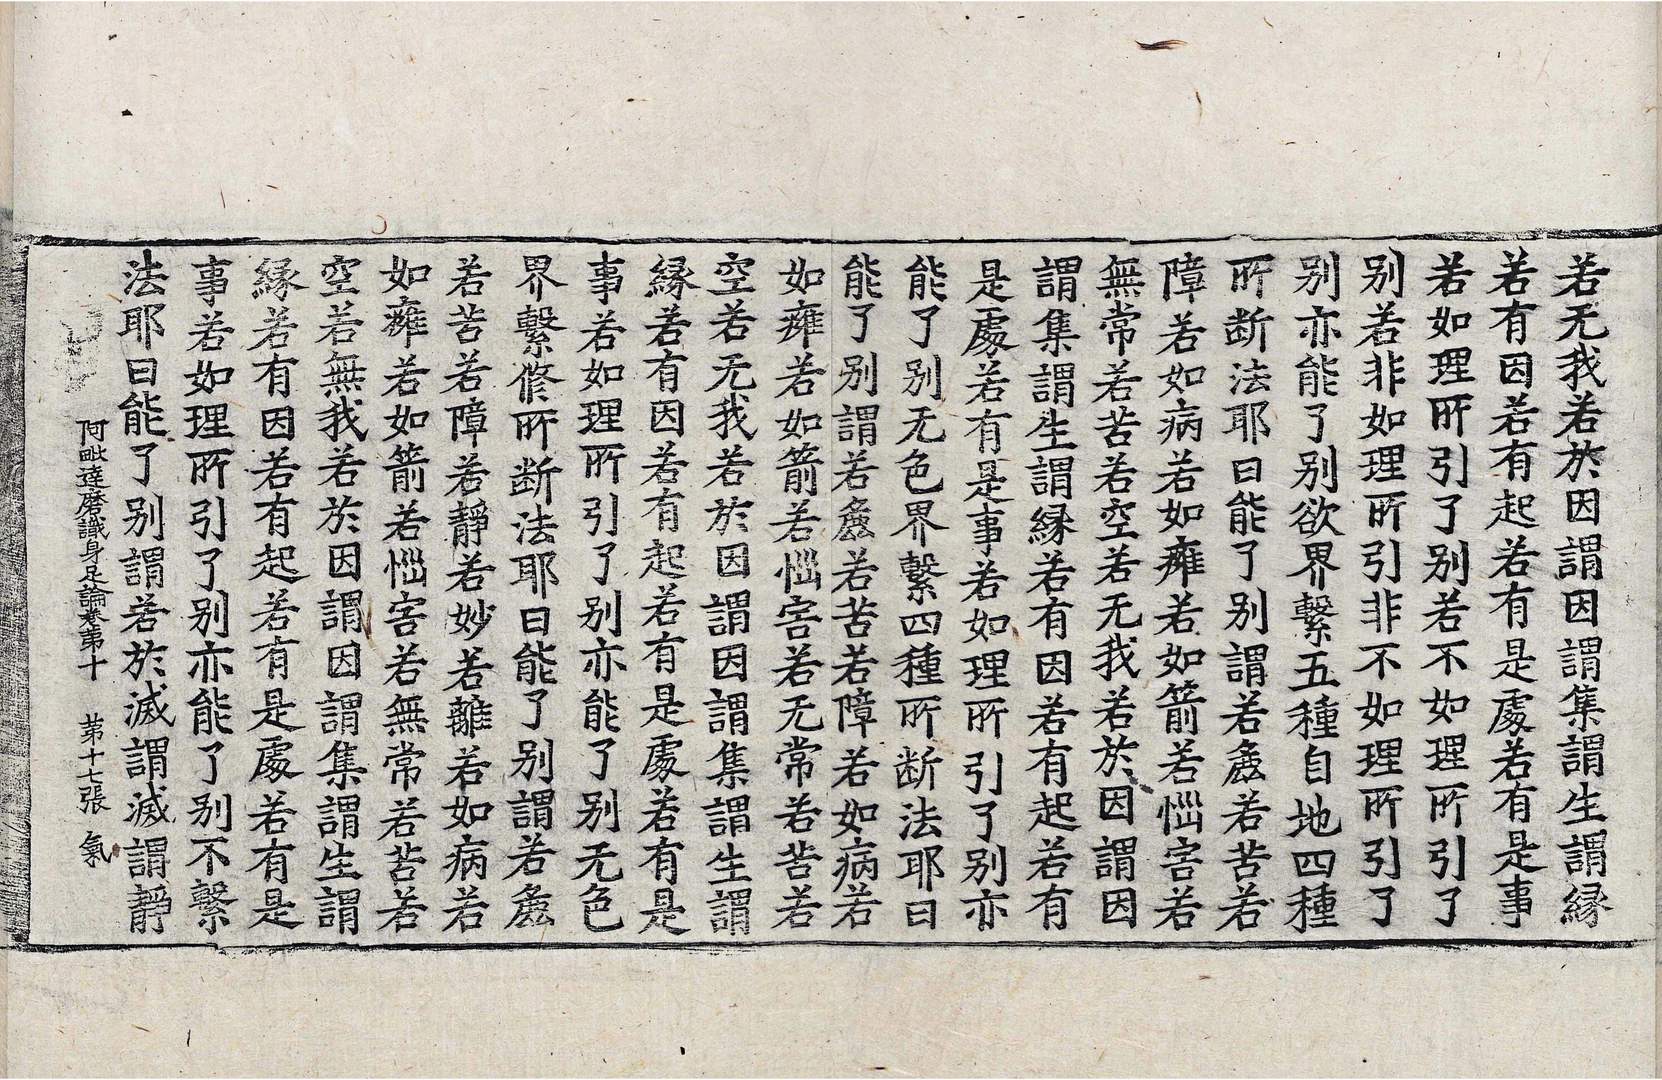 若无我若於因謂因謂集謂生謂縁
若有因若有起若有是處若有是事
若如理所引了别若不如理所引了
别若非如理所引非不如理所引了
别亦能了别欲界繫五種自地四種
所断法耶曰能了别謂若麁若苦若
障若如病若如癰若如箭若惱害若
無常若苦若空若无我若於因謂因
謂集謂生謂縁若有因若有起若有
是處若有是事若如理所引了别亦
能了别无色界繫四種所断法耶曰
能了别謂若麁若苦若障若如病若
如癰若如箭若惱害若无常若苦若
空若无我若於因謂因謂集謂生謂
縁若有因若有起若有是處若有是
事若如理所引了别亦能了别无色
界繫修所断法耶曰能了别謂若麁
若苦若障若靜若妙若離若如病若
如癰若如箭若惱害若無常若苦若
空若無我若於因謂因謂集謂生謂
縁若有因若有起若有是處若有是
事若如理所引了别亦能了别不繫
法耶曰能了别謂若於滅謂滅謂靜
阿毗達磨識身足論卷第十 第十七張 氣